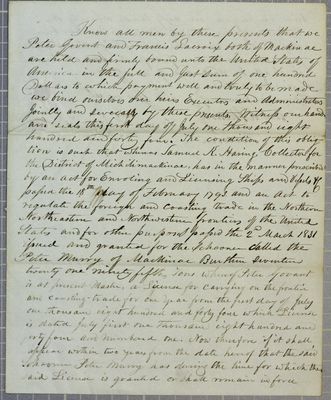 Know all men by these presents that we
Peter Govant and Francis Lacroix both of Mackinac
are held and firmly bound unto the United States of
America in the full and just sum of one hundred
Dollars to which payment well and truly to be made
we bind ourselves our heirs Executors and Administrators
Jointly and severally by these presents Witness our hands
and seals this first day of July one thousand eight
hundred and forty four. The condition of this obliga
tion is such that whereas Samuel K. Haring Collector for
the District of Michilimackinac has in the manner provided
by an act for Enrolling and Licensing Ships and Vessels &c
passed the 18th day of February 1793 and an act to
regulate the foreign and coasting trade in the Northern
Northeastern and Northwestern frontiers of the United
States and for other purposes passed the 2d March 1831
issued and granted for the Schooner called the
Peter Murry of Mackinac Burthen seventeen
twenty one ninety fifths Tons whereof Peter Govant
is at present Master, a License for carrying on the
coasting trade for one year from the first day of July
one thousand eight hundred and forty four which License
is dated July first one thousand eight hundred and
forty four and numbered one. Now therefore if it shall
appear within two years from the date hereof that the said
Schooner Peter Murry has during the time for which the
said License is granted or shall remain in force